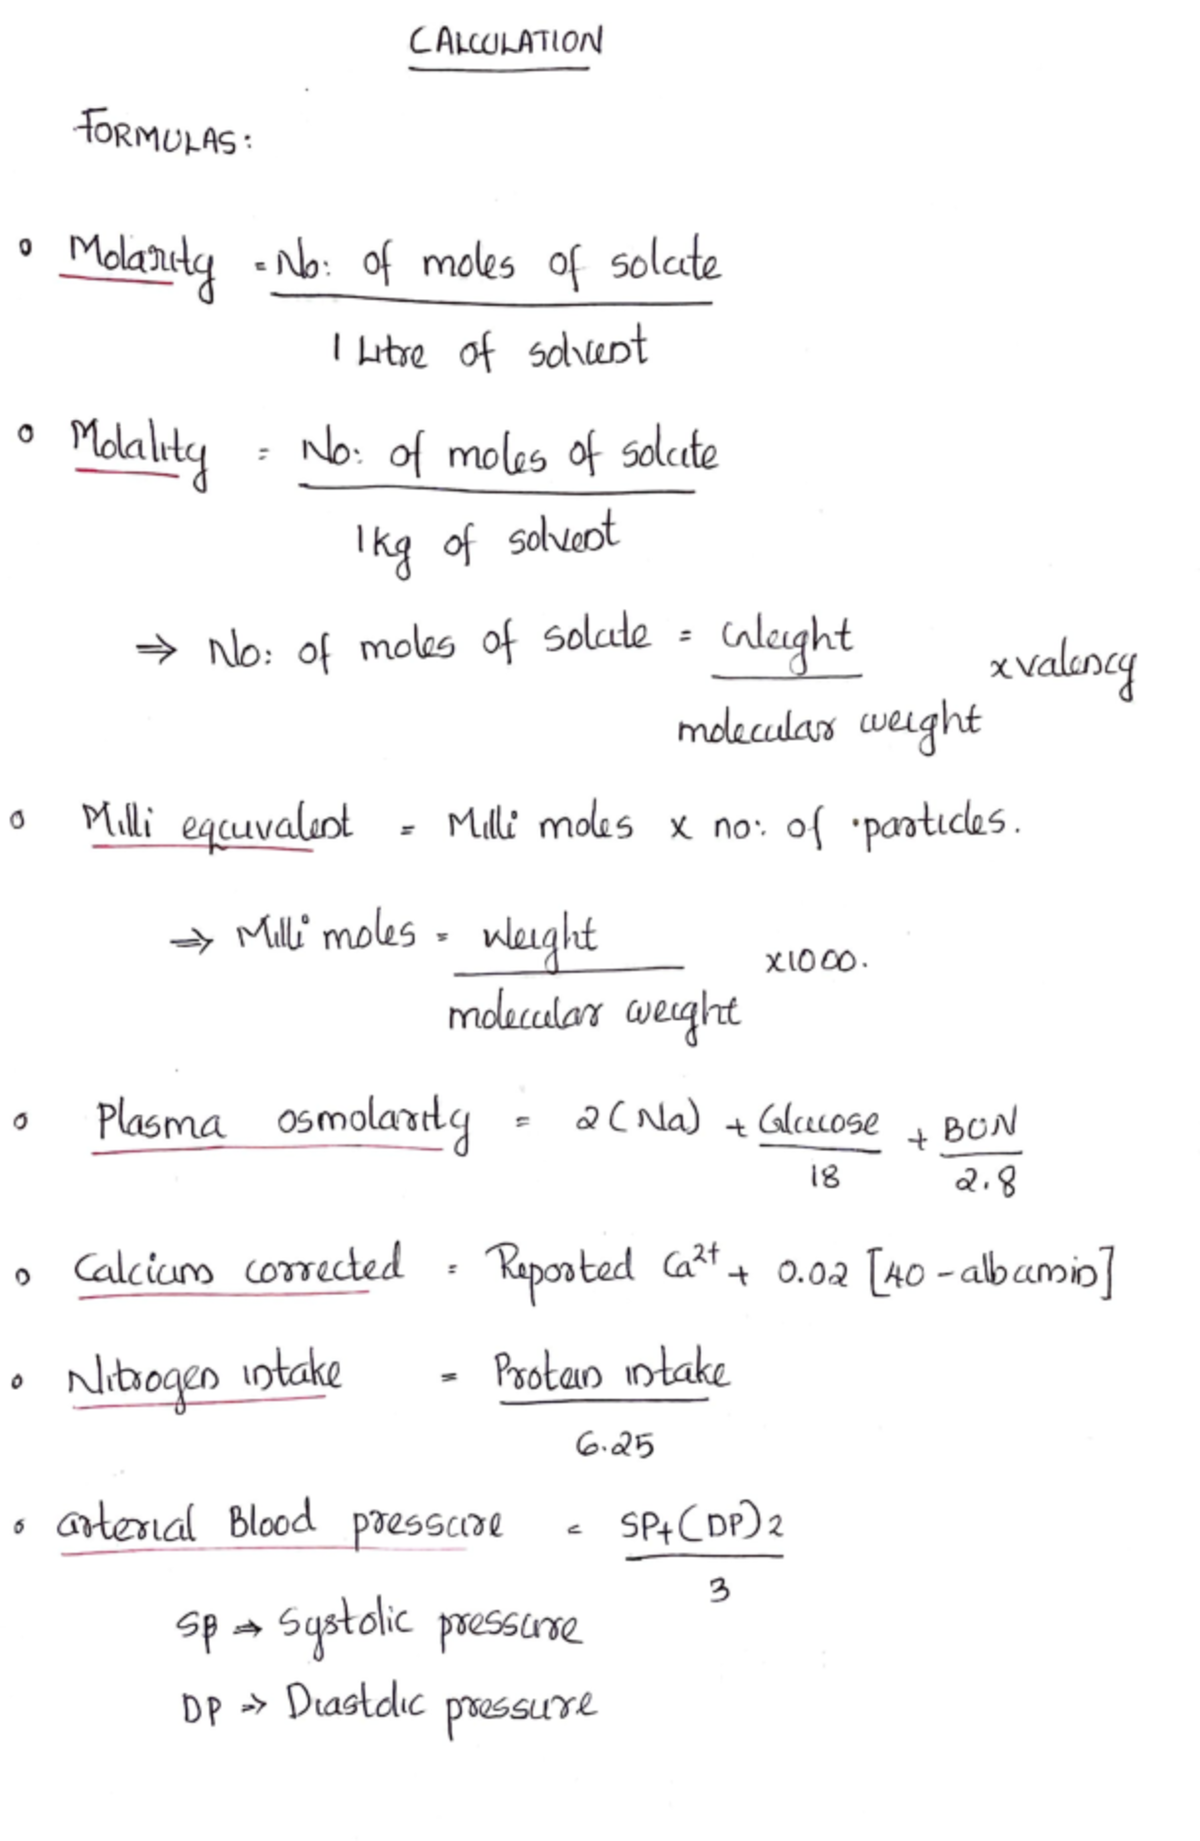 CALCULATION
FORMULAS:
Molarity = No: of moles of solute
1 Litre of solvent
Molality = No: of moles of solute
1kg of solvent
⇒ No: of moles of solute = Weight
x valency
molecular weight
Milli equivalent = Milli moles x no: of particles.
⇒ Milli moles = Weight
x1000.
molecular weight
Plasma osmolarity = 2(Na) + Glucose + BUN
18 2.8
Calcium corrected = Reported Ca²⁺ + 0.02 [40 - albumin]
Nitrogen intake = Protein intake
6.25
arterial Blood pressure = SP+(DP)2
3
SP ⇒ Systolic pressure
DP ⇒ Diastolic pressure